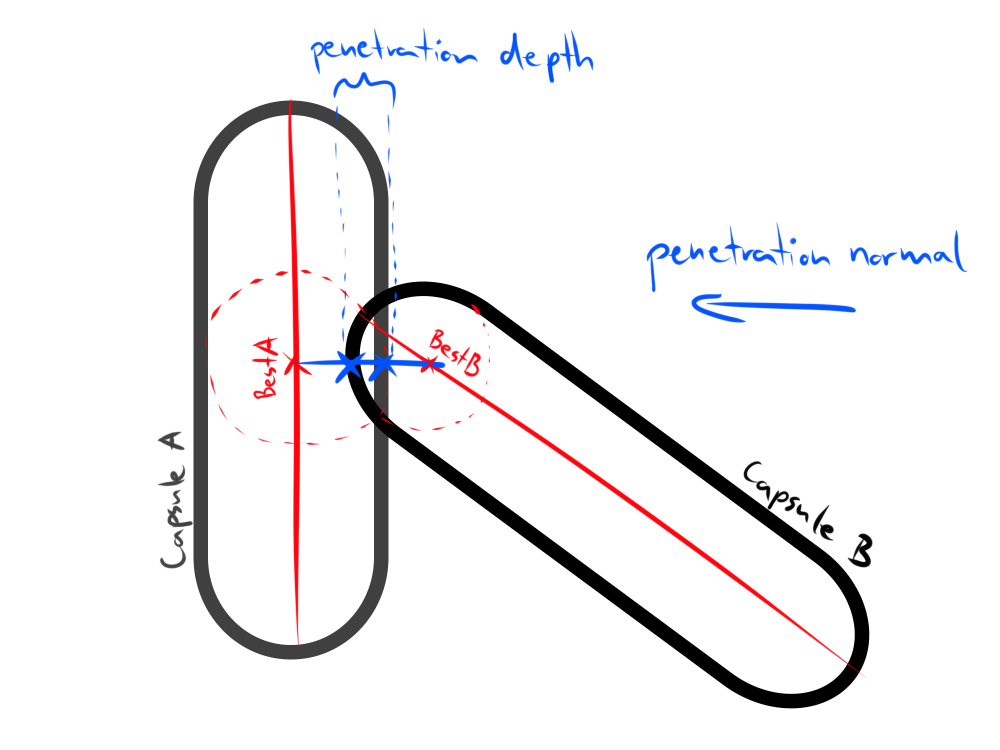 penetration depth
penetration normal
BestA
BestB
Capsule A
Capsule B